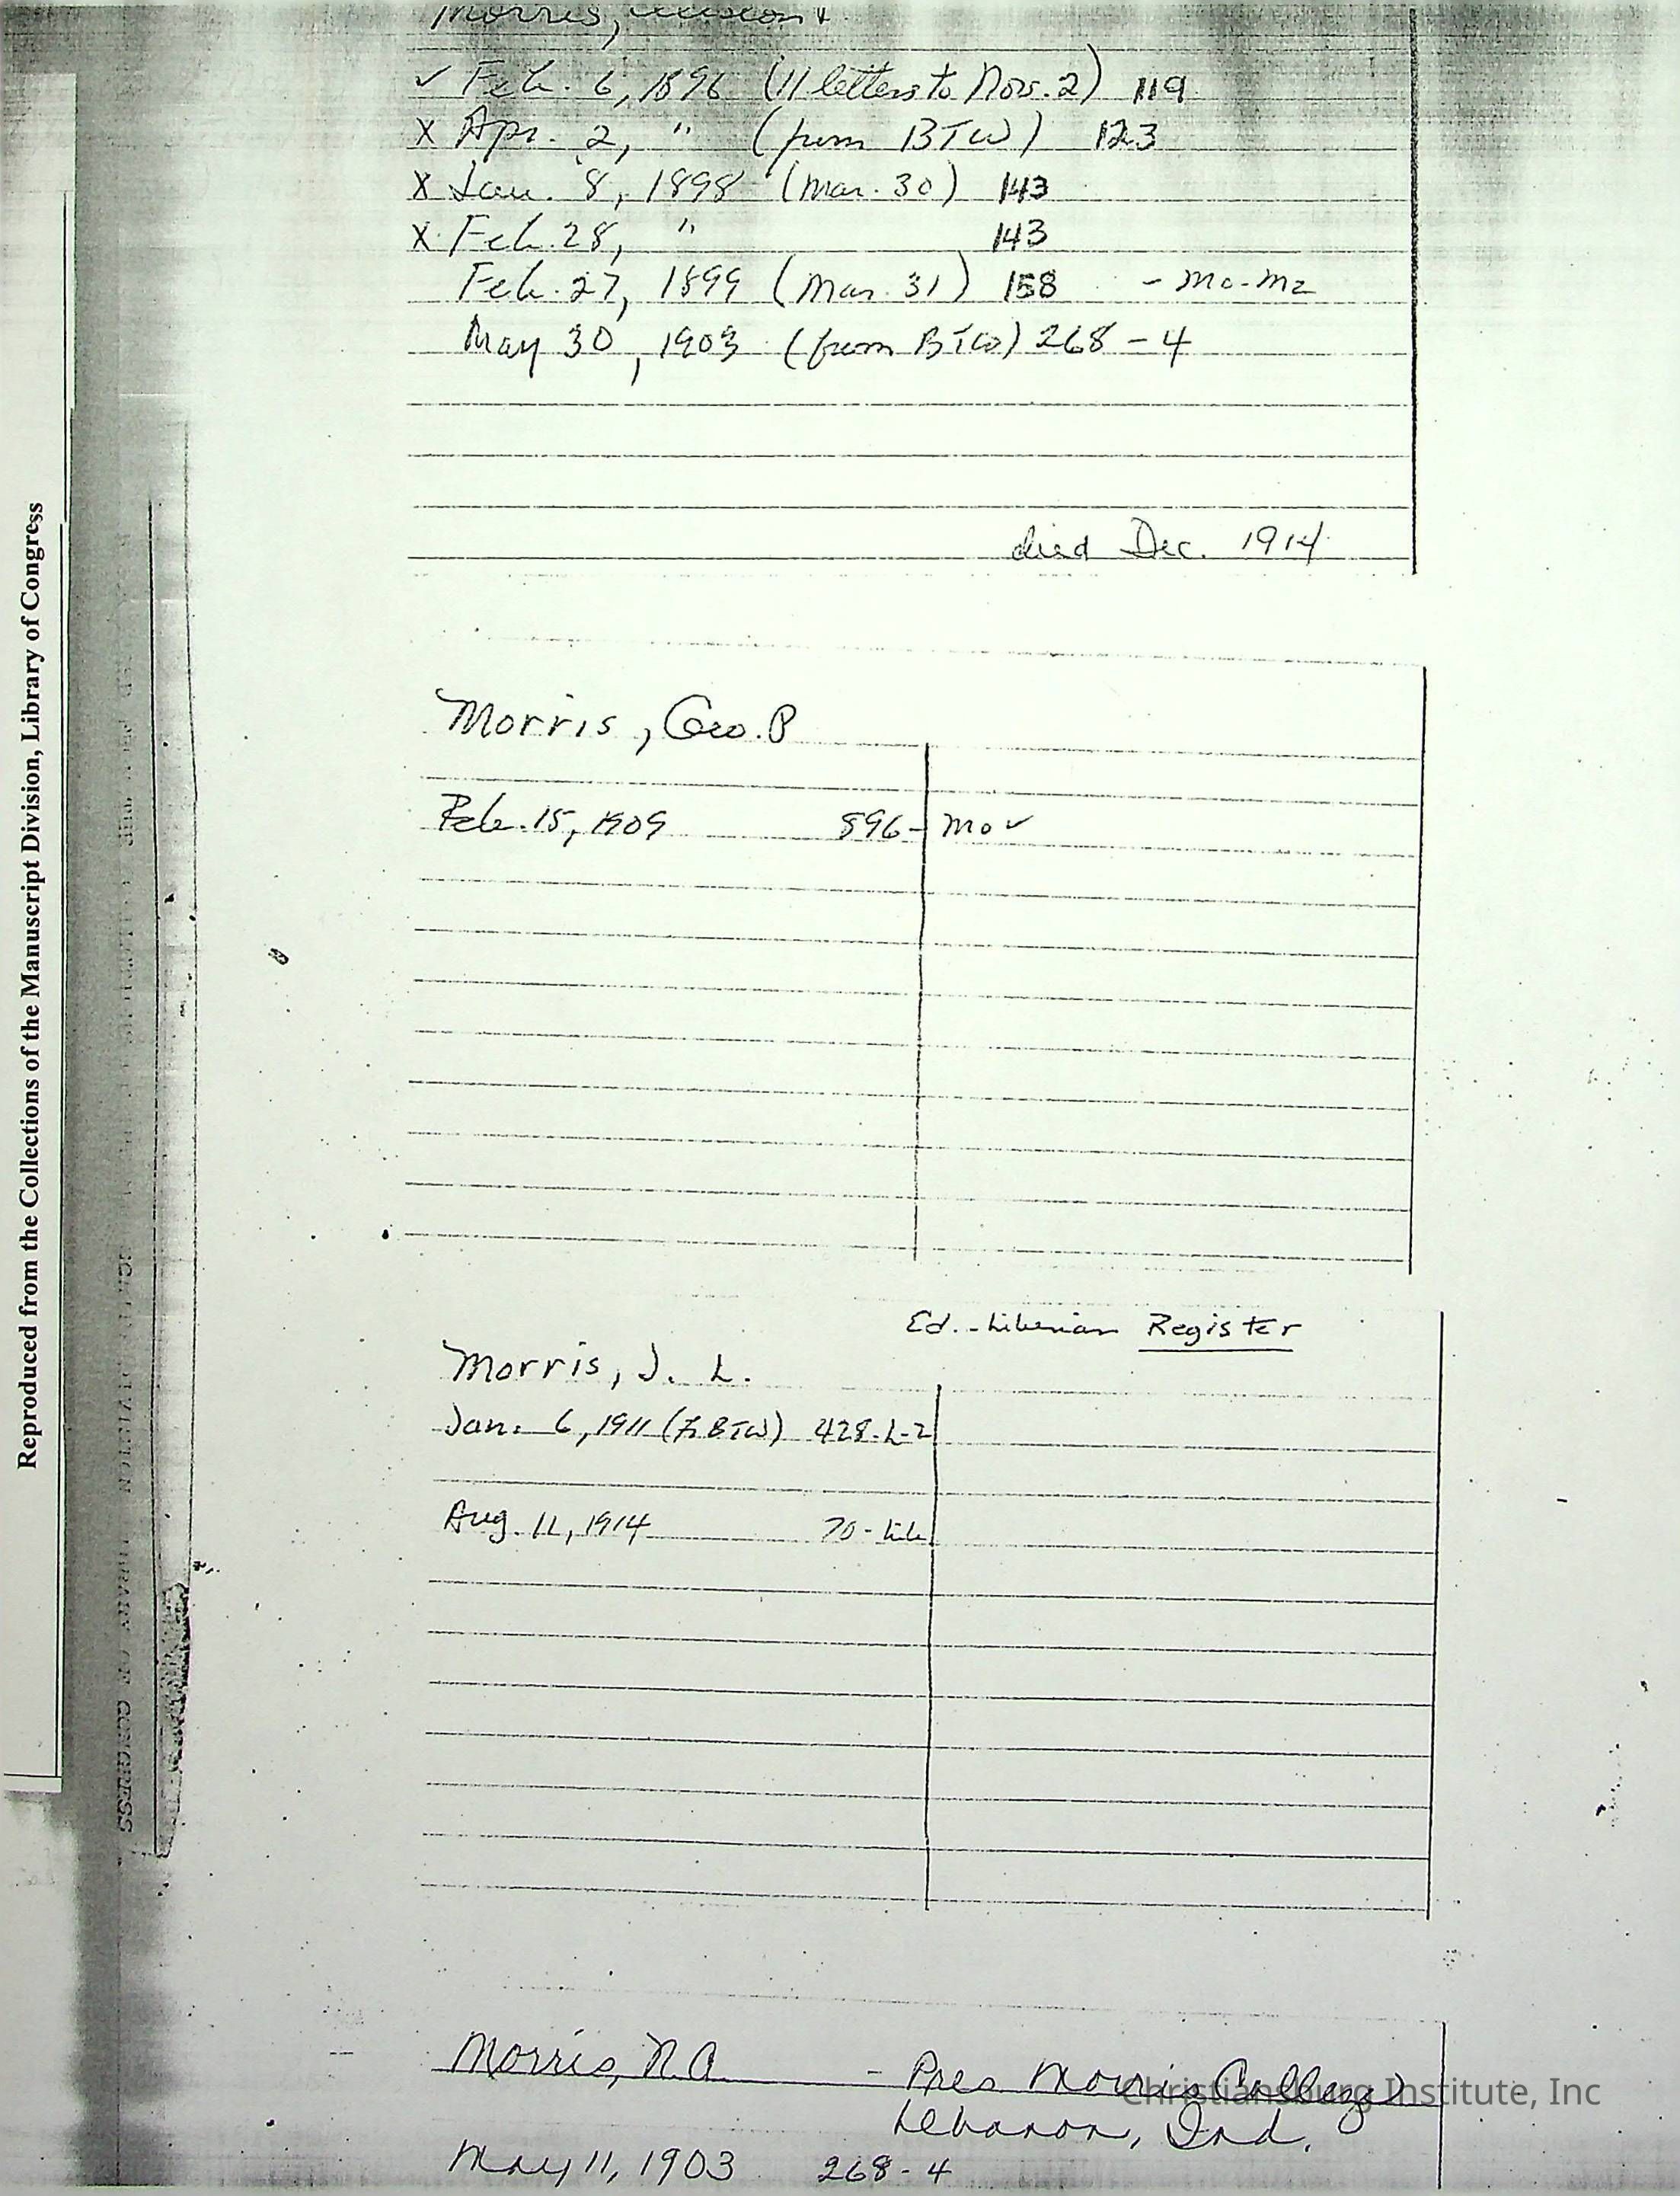 Morris,
✓ Feb. 6, 1896 (11 letters to Nov. 2) 119
X Apr. 2, " (from BTW) 123
X Jan. 8, 1898 (Mar. 30) 143
X Feb. 28, " 143
Feb. 27, 1899 (Mar. 31) 158 - Mc-Mz
May 30, 1903 (from BTW) 268-4
died Dec. 1914
Morris, Geo. P
Feb. 15, 1909 896- Mo ✓
Ed. - Liberian Register
Morris, J. L.
Jan. 6, 1911 (fr BTW) 428-L-2
Aug. 11, 1914 70-Lib
Morris, N.A. - Pres Morris College
Lebanon, Ind.
May 11, 1903 268-4
Reproduced from the Collections of the Manuscript Division, Library of Congress
LIBRARY OF CONGRESS
Christiansburg Institute, Inc